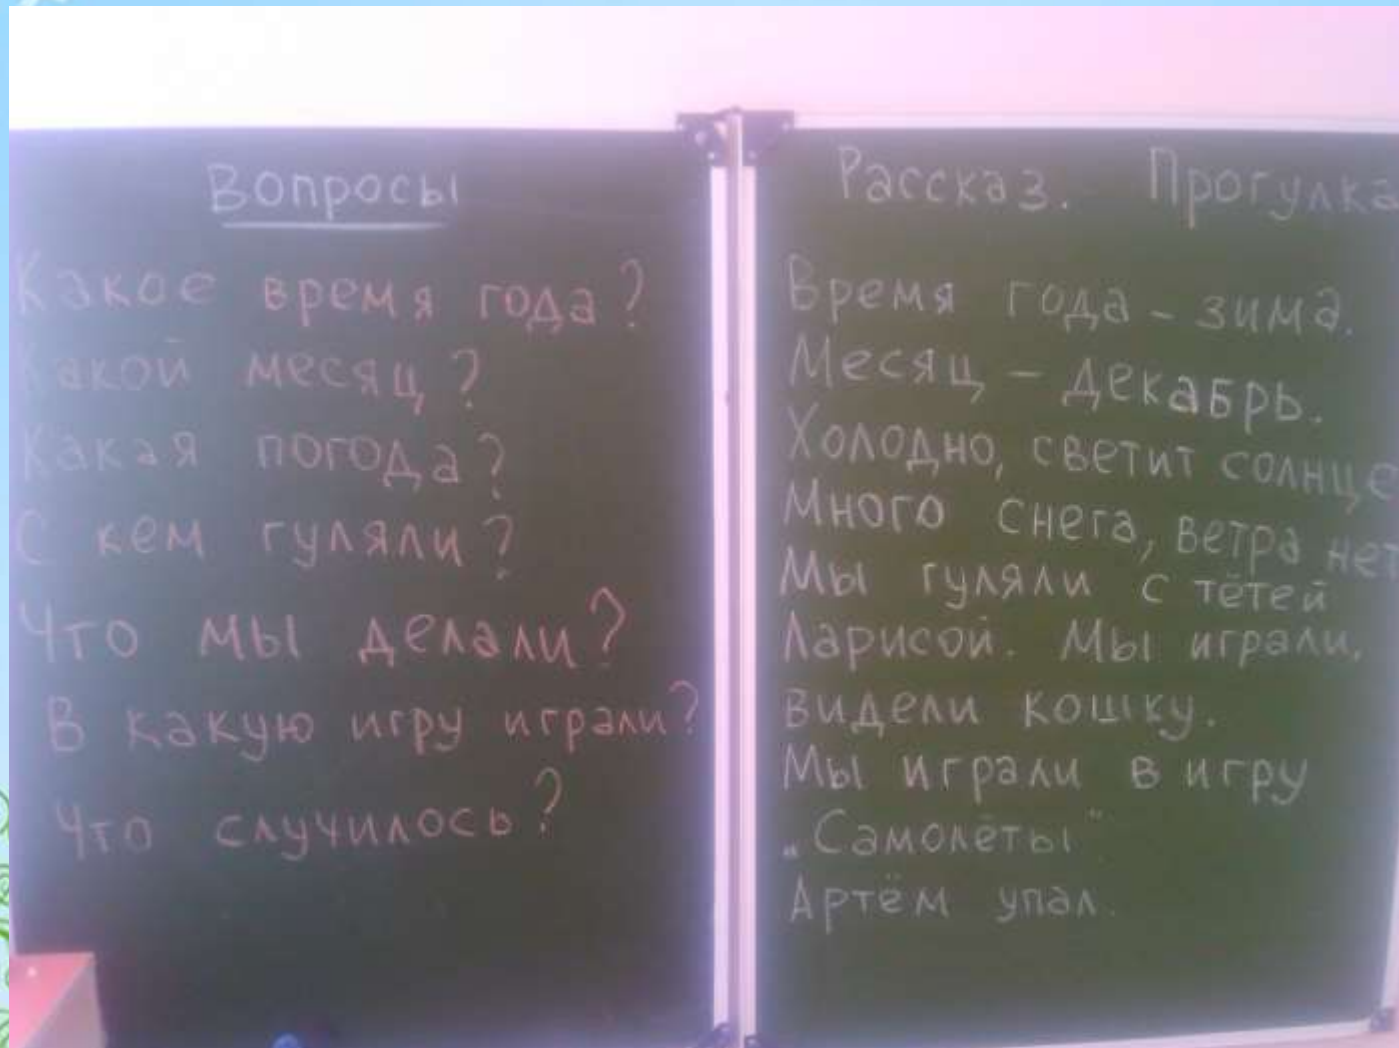 Вопросы
Какое время года?
Какой месяц?
Какая погода?
С кем гуляли?
Что мы делали?
В какую игру играли?
Что случилось?
Рассказ. Прогулка
Время года - зима.
Месяц - декабрь.
Холодно, светит солнце
Много снега, ветра нет
Мы гуляли с тётей
Ларисой. Мы играли,
видели кошку.
Мы играли в игру
„Самолёты"
Артём упал.